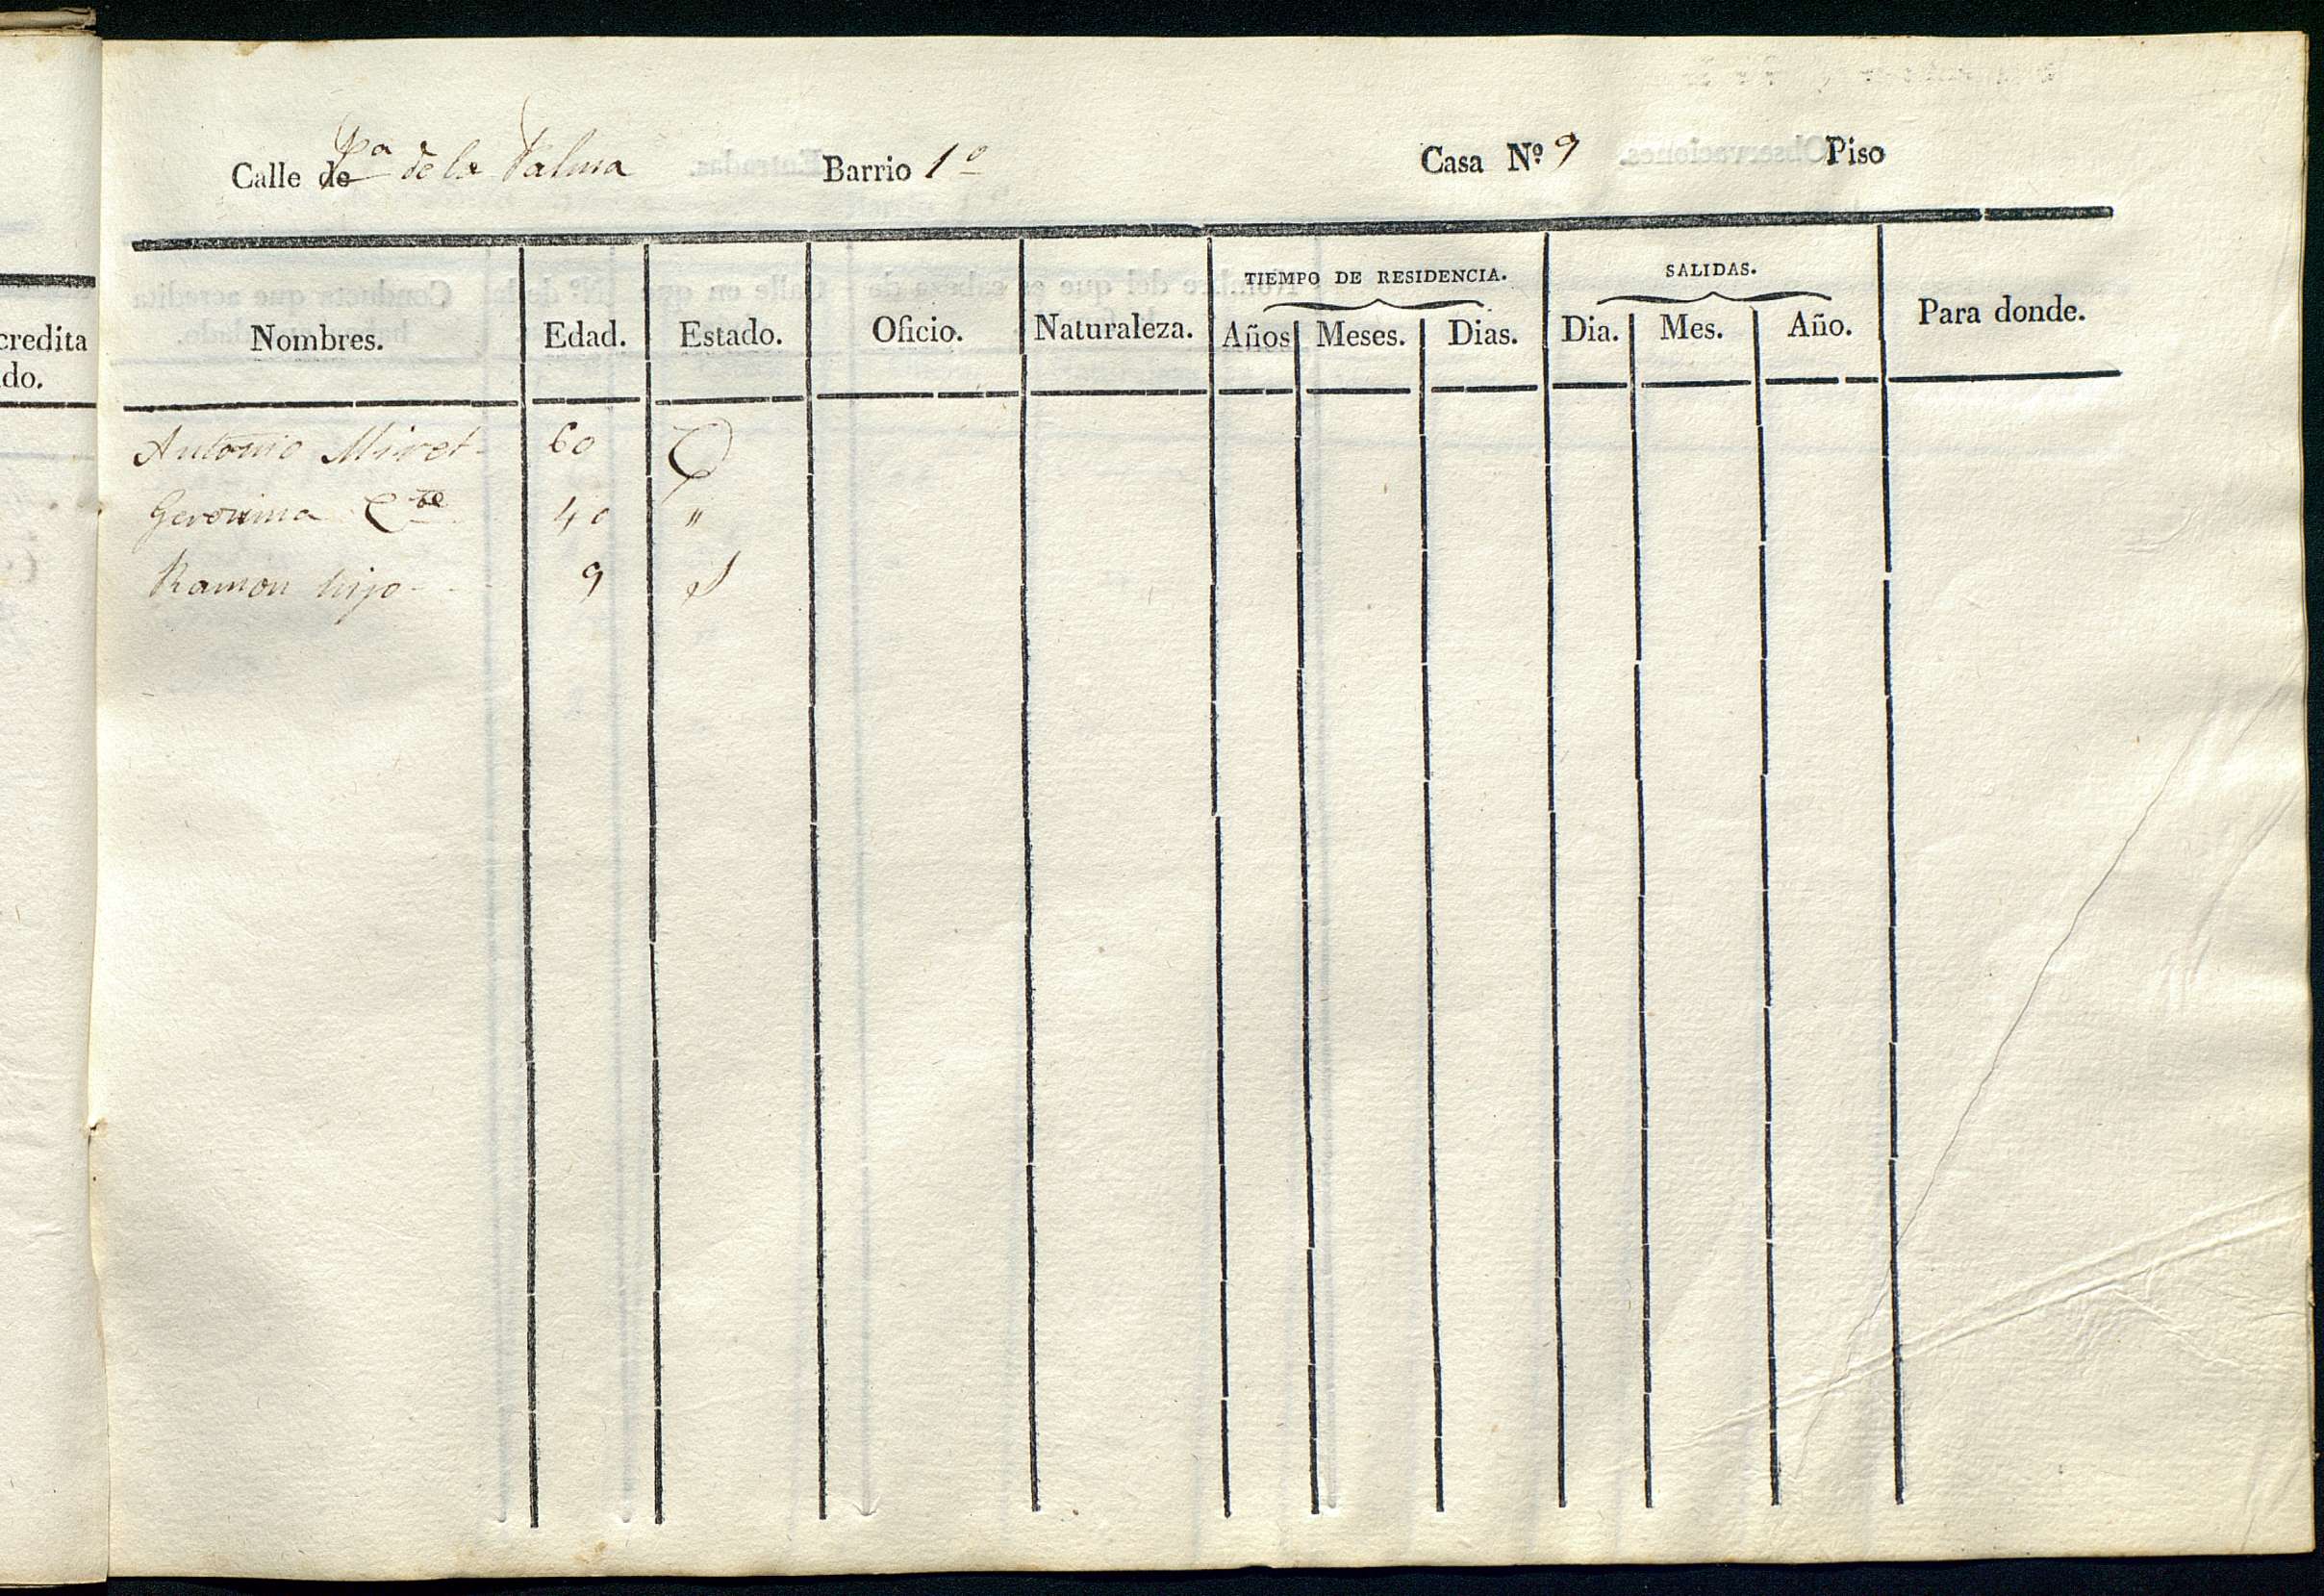 credita
do.
Calle de Pª de la Palma Barrio 1º Casa Nº 9 Piso
TIEMPO DE RESIDENCIA. SALIDAS.
Nombres. Edad. Estado. Oficio. Naturaleza. Años Meses. Dias. Dia. Mes. Año. Para donde.
Antonio Miret 60 C
Geronima 40 "
Ramon hijo 9 S